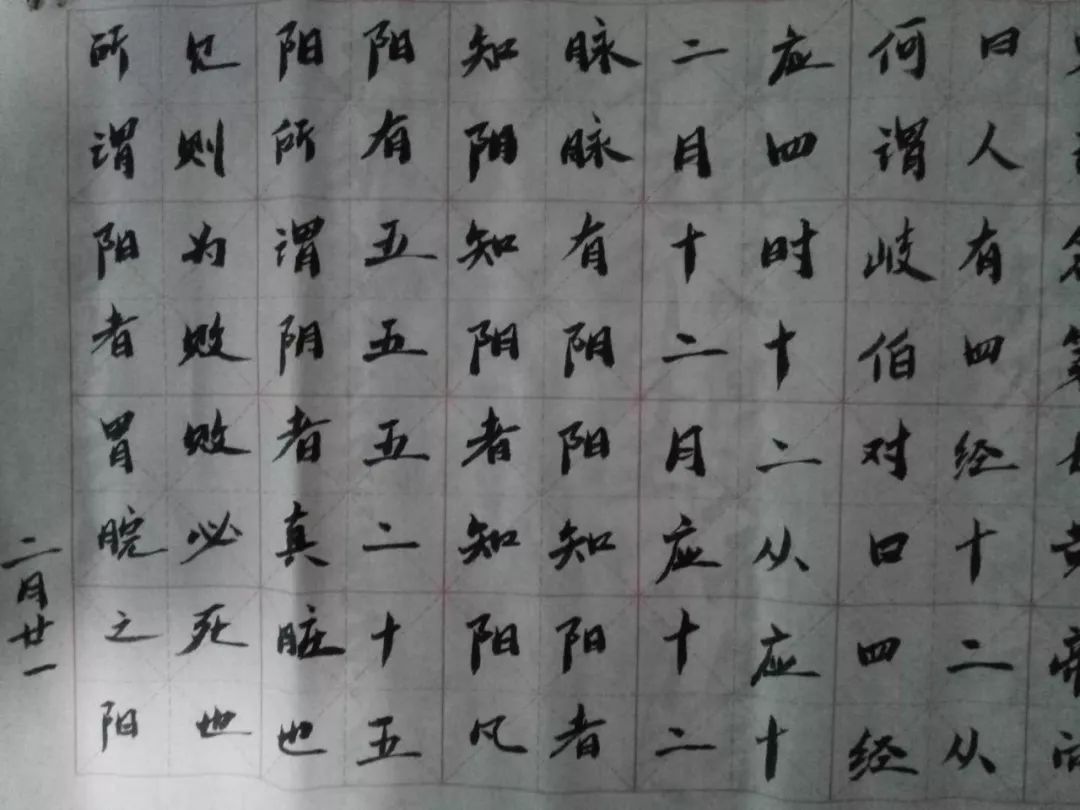 曰人有四经十二从
何谓岐伯对曰四经
应四时十二从应十
二月十二月应十二
脉脉有阳阳知阳者
知阳知阳者知阳凡
阳有五五五二十五
阳所谓阴者真脏也
见则为败败必死也
所谓阳者胃脘之阳
二月廿一